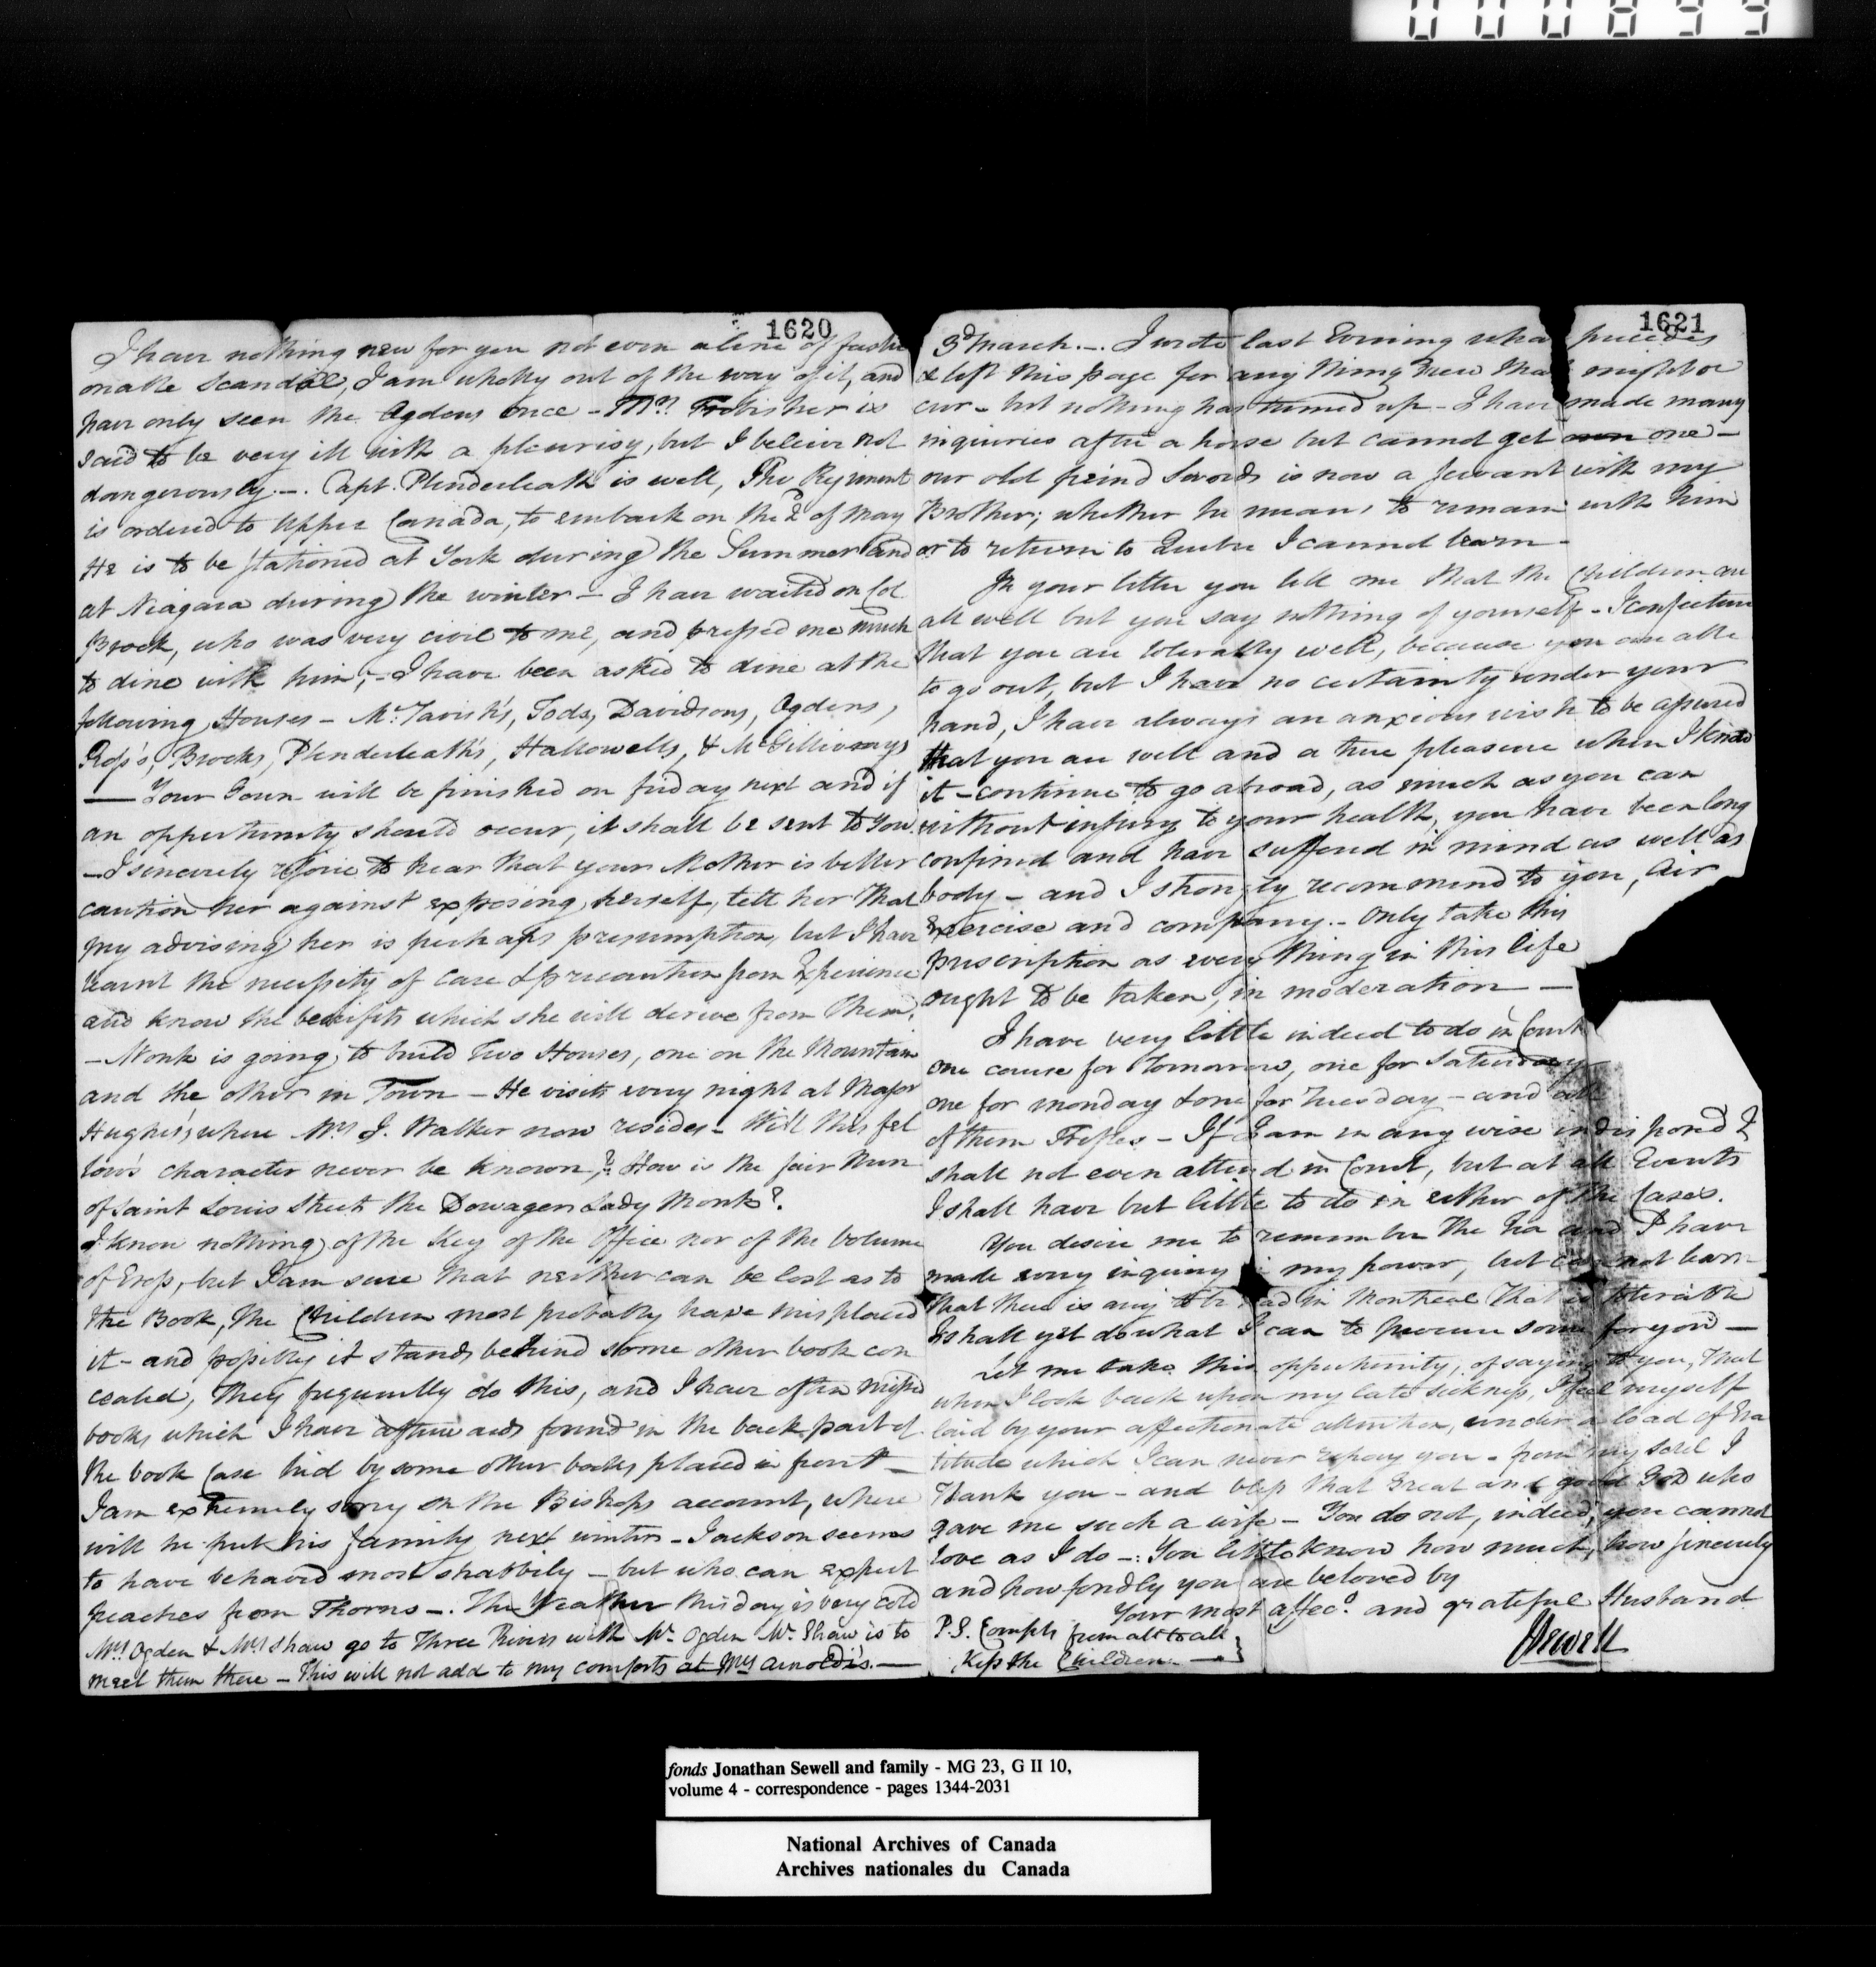 000899
1620
I have nothing new for you not even a line of fashi
onable Scandal, I am wholly out of the way of it, and
have only seen the Ogdens once - Mrs. Frobisher is
said to be very ill with a pleurisy, but I beleive not
dangerously. -. Capt. Plenderleath is well, The Regiment
is ordered to Upper Canada, to embark on the 2d of May
He is to be stationed at York during the Summer and
at Niagara during the winter - I have waited on Col
Brock, who was very civil to me, and pressed me much
to dine with him; - I have been asked to dine at the
following Houses - McTavish's, Tods, Davidsons, Ogdens,
Ross's, Brocks, Plenderleath's, Hallowells, & McGillivrays
— Your Gown will be finished on friday next and if
an opportunity should occur, it shall be sent to you
- I sincerely rejoice to hear that your Mother is better
caution her against exposing herself, tell her that
my advising her is perhaps presumption, but I have
learnt the necessity of Care & precaution from Experience
and know the benifits which she will derive from them.
- Monk is going to build Two Houses, one on the Mountain
and the other in Town - He visits every night at Major
Hughes's, where Mrs J. Walker now resides - Will this fel
low's character never be known? How is the fair Nun
of Saint Louis Street the Dowager Lady Monk?
I know nothing of the Key of the Office nor of the volume
of but I am sure that neither can be lost as to
the Book, The Children most probably have misplaced
it - and possibly it stands behind some other book con
cealed, they frequently do this, and I have often missed
books which I have afterwards found in the back part of
the book Case hid by some other books placed in front -
I am extremely sorry on the Bishops account, where
will he put his family next winter - Jackson seems
to have behaved most shabbily - but who can expect
peaches from Thorns -. The Weather this day is very cold
Mrs Ogden & Mrs Shaw go to Three Rivers with Mr. Ogden Mr. Shaw is to
meet them there - This will not add to my comforts at Mrs Arnoldi's. —
1621
3d March. -. I wrote last Evening what precedes
& left this page for any thing new that might oc
cur - but nothing has turned up - I have made many
inquiries after a horse but cannot get one -
our old freind Swords is now a servant with my
Brother; whether he means to remain with him
or to return to Quebec I cannot learn -
In your letter you tell me that the Children are
all well but you say nothing of yourself - I conjecture
that you are tolerably well, because you are able
to go out, but I have no certainty under your
hand, I have always an anxious wish to be assured
that you are well and a true pleasure when I know
it - continue to go abroad, as much as you can
without injury to your health, you have been long
confined and have suffered in mind as well as
body - and I strongly recommend to you, Air
Exercise and company. - Only take this
prescription as every thing in this life
ought to be taken, in moderation —
I have very little indeed to do in Court
one cause for tomorrow, one for Saturday
one for monday & one for Tuesday - and all
of them Trifles - If I am in any wise indisposed I
shall not even attend in Court, but at all Events
I shall have but little to do in either of the Cases.
You desire me to remember the Tea and I have
made every inquiry in my power, but cannot learn
that there is any to be had in Montreal that is tolerable
I shall yet do what I can to procure some for you —
Let me take this opportunity, of saying to you, that
when I look back upon my late sickness, I feel myself
laid by your affectionate attention, under a load of Gra
titude which I can never repay you - from my soul I
Thank you - and bless that Great and good God who
gave me such a wife - You do not, indeed, you cannot
love as I do -: You little know how much, how sincerely
and how fondly you are beloved by
Your most affece. and grateful Husband
P.S. Compts from all to all
Kiss the Children. —
JSewell
fonds Jonathan Sewell and family - MG 23, G II 10,
volume 4 - correspondence - pages 1344-2031
National Archives of Canada
Archives nationales du Canada